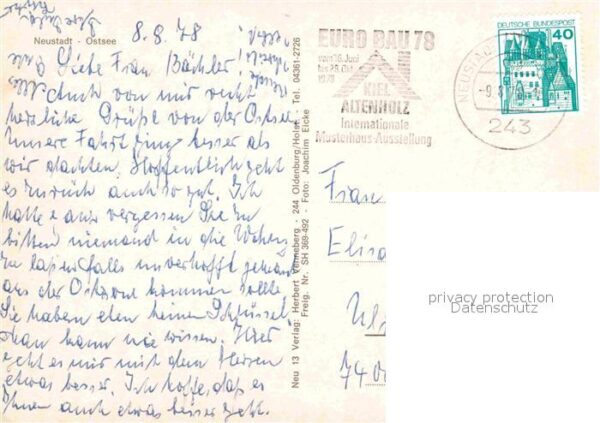 Neustadt - Ostsee
8.8.78
Liebe Frau Bächler!
Auch von mir recht
herzliche Grüße von der Ostsee
Unsere Fahrt ging besser als
wir dachten. Hoffentlich geht
es zurück auch so gut. Ich
hatte ganz vergessen Sie zu
bitten niemand in die Wohng
zu laßen falls unverhofft jemand
aus der Ostzone kommen sollte
Sie haben eben keinen Schlüssel
Man kann nie wissen. Hier
geht es mir mit dem Herzen
etwas besser. Ich hoffe, daß es
Ihnen auch etwas besser geht.
Neu 13 Verlag: Herbert Venneberg - 244 Oldenburg/Holst. Tel. 04361-2726
Freig. Nr. SH 368-492 - Foto: Joachim Eicke
EURO BAU 78
vom 16. Juni
1978
KIEL
ALTENHOLZ
Internationale
Musterhaus-Ausstellung
DEUTSCHE BUNDESPOST
40
243
Frau
Elisa
Ul
7400
privacy protection
Datenschutz